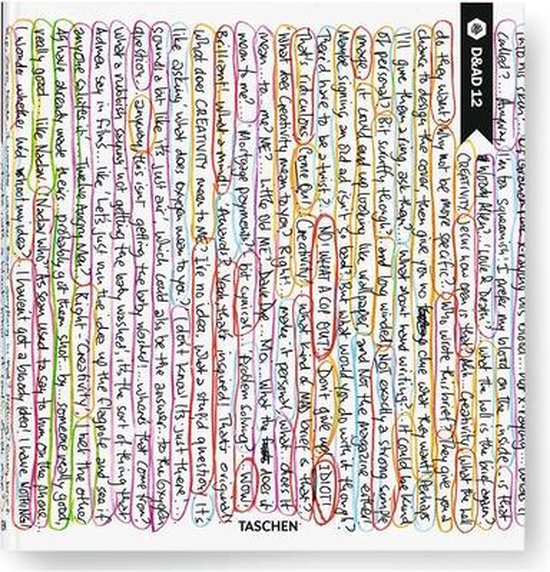 D&AD 12
called?... Anyway, I'm too squeamish I prefer my blood on the inside... is that
Woody Allen? 'Love & Death'? what the hull is the brief again?
CREATIVITY! Jesus how open is that? Creativity (what the hell
do they want? Why not be more specific? Who wrote this brief? They give you a
chance to design the cover, then give you no clue what they want! Perhaps
I'll give them a ring, ask them? What about hand writing? It could be kind
of personal? (Bit scruffy though?) (and long winded) Not exactly a strong simple
image? Could end up looking like wallpaper, and Not the magazine either.
Maybe signing an old ad isn't so bad? But what would you do with it though?
There'd have to be a twist? NO, WHAT A COP OUT! Don't give up IDIOT!
That's ridiculous. Come On! Creativity. What kind of MAD brief is that?
What does Creativity mean to you? Right.. make it personal, what... does it
mean... to... me? ME? Little old ME... Dave Dye... Mo... What the does
mean to me? Mortgage payments? (bit cynical) Problem solving? WOW!
Brilliant! What a mind! Awards? Yeah, that's inspired. That's original
What does CREATIVITY mean to ME? I've no idea. What a stupid question, it's
like asking 'what does oxygen mean to you?' I don't know. It's just there...
sounds a bit like 'It's just air'. Which could also be the answer to the oxygen
question. anyway this isn't getting the baby washed!... where's that come from?
What a rubbish saying not getting the baby washed, it's the sort of thing that
Admen say in films... like, Let's just run the idea up the flagpole and see if
anyone salutes it... Twelve Angry Men? Right - Creativity? Not the other
have already made theirs. probably got them shot... by... someone really good,
really good... like Nadav (Nadav who? used to say to him on the phone...
I wonder whether he'd my idea? I haven't got a bloody idea! I have NOTHING
TASCHEN